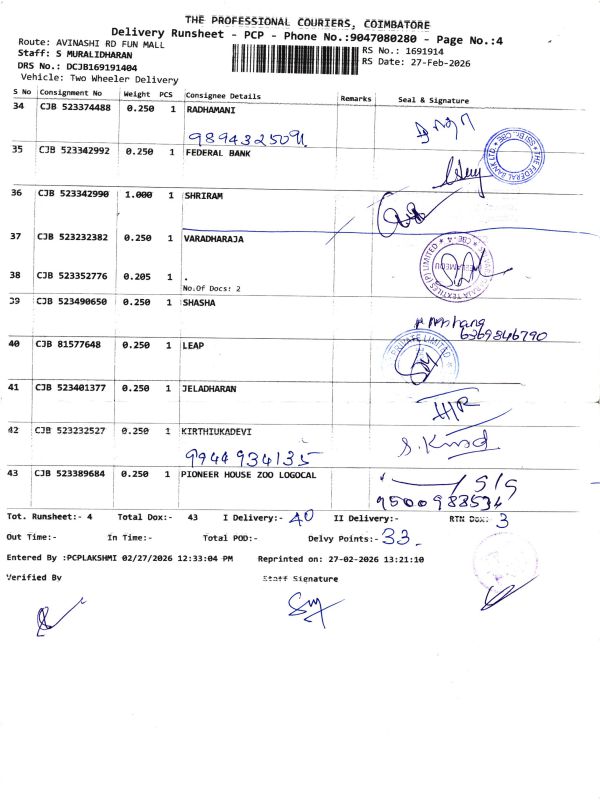 THE PROFESSIONAL COURIERS, COIMBATORE
Delivery Runsheet - PCP - Phone No.:9047080280 - Page No.:4
Route: AVINASHI RD FUN MALL
Staff: S MURALIDHARAN
RS No.: 1691914
DRS No.: DCJB169191404
RS Date: 27-Feb-2026
Vehicle: Two Wheeler Delivery
S No Consignment No Weight PCS Consignee Details Remarks Seal & Signature
34 CJB 523374488 0.250 1 RADHAMANI
9894325091
35 CJB 523342992 0.250 1 FEDERAL BANK
THE FEDERAL BANK LTD.
36 CJB 523342990 1.000 1 SHRIRAM
37 CJB 523232382 0.250 1 VARADHARAJA
38 CJB 523352776 0.205 1 .
No.Of Docs: 2
39 CJB 523490650 0.250 1 SHASHA
6369846790
40 CJB 81577648 0.250 1 LEAP
PRIVATE LIMITED
41 CJB 523401377 0.250 1 JELADHARAN
42 CJB 523232527 0.250 1 KIRTHIUKADEVI
9944934135
43 CJB 523389684 0.250 1 PIONEER HOUSE ZOO LOGOCAL
9500988534
Tot. Runsheet:- 4 Total Dox:- 43 I Delivery:- 40 II Delivery:- RTN Dox: 3
Out Time:- In Time:- Total POD:- Delvy Points:- 33
Entered By :PCPLAKSHMI 02/27/2026 12:33:04 PM Reprinted on: 27-02-2026 13:21:10
Verified By Staff Signature